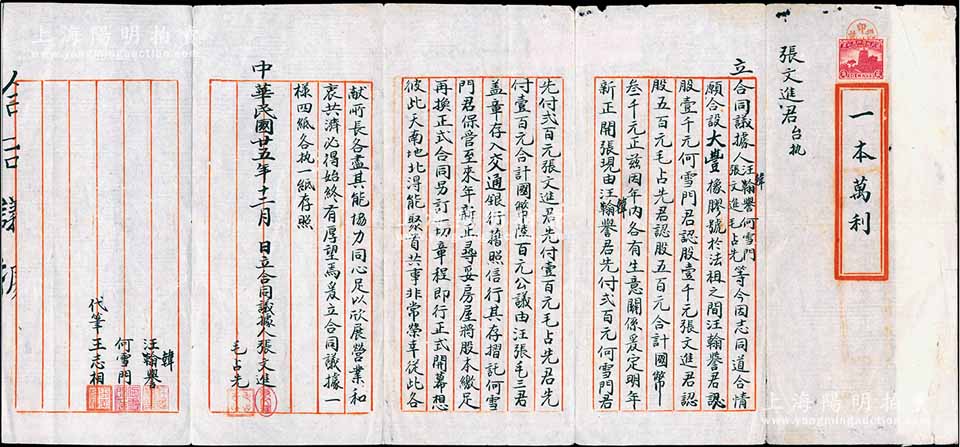 一本萬利
張文進君台执
立合同議據人汪翰譽何雪門張文進毛占先等今因志同道合情
韓
願合設大豐橡膠號於法租之間汪翰譽君認
股壹千元何雪門君認股壹千元張文進君認
股五百元毛占先君認股五百元合計國幣
叁千元正茲因年內各有生意關係爰定明年
新正開張現由汪翰譽君先付弍百元何雪門君
韓
先付弍百元張文進君先付壹百元毛占先君先
付壹百元合計國幣陸百元公議由汪張毛三君
蓋章存入交通銀行舊照信行其存摺託何雪
門君保管至來年新正尋妥房屋將股本繳足
再換正式合同另訂一切章程即行正式開幕想
彼此天南地北得能聚首共事非常榮幸從此各
献所長各盡其能協力同心足以欣展營業和
衷共濟必得始終有厚望焉爰立合同議據一
樣四紙各执一紙存照
中華民國廿五年十二月 日立合同議據人張文進
毛占先
汪翰譽
韓
何雪門
代筆王志相
上海陽明拍賣
www.yangmingauction.com
上海陽明拍賣
www.yangmingauction.com